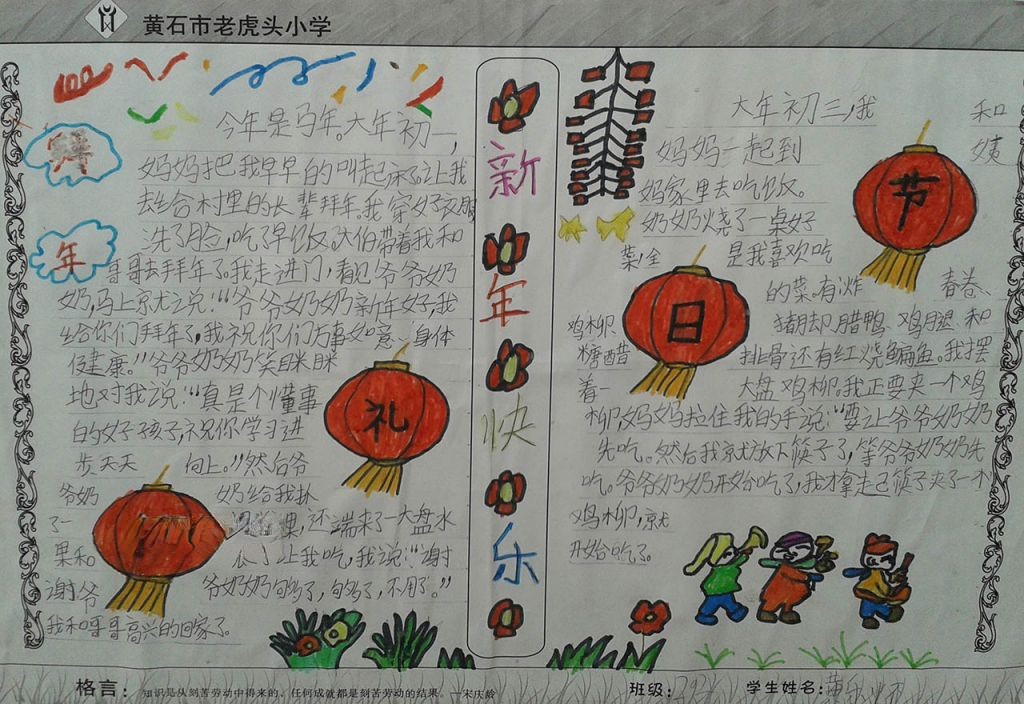 黄石市老虎头小学
拜
年
今年是马年。大年初一,
妈妈把我早早的叫起床了。让我
去给村里的长辈拜年。我穿好衣服
洗了脸,吃了早饭。大伯带着我和
哥哥去拜年了。我走进门,看见爷爷奶
奶,马上就说:“爷爷奶奶新年好,我
给你们拜年了,我祝你们万事如意、身体
健康。”爷爷奶奶笑眯眯
地对我说:“真是个懂事
的好孩子,祝你学习进
步天天 向上。”然后爷
爷奶 奶给我扒
了一 ,还端来了一大盘水
果和 瓜子让我吃,我说:“谢
谢爷 爷奶奶够了,够了,不用了。”
我和哥哥高兴的回家了。
礼
新
年
快
乐
大年初三,我 和
妈妈一起到 姨
妈家里去吃饭。
奶奶烧了一桌好
菜!全 是我喜欢吃
的菜。有炸 春卷、
鸡柳、 猪脚、腊鸭、鸡腿、和
糖醋 排骨还有红烧鳊鱼。我摆
着一 大盘鸡柳。我正要夹一个鸡
柳,妈妈拉住我的手说:“要让爷爷奶奶
先吃。然后我就放下筷子了,等爷爷奶奶先
吃。爷爷奶奶开始吃了,我才拿起筷子夹了一个
鸡柳,就
开始吃了。
节
日
格言:知识是从刻苦劳动中得来的,任何成就都是刻苦劳动的结果。—宋庆龄
班级:
学生姓名: